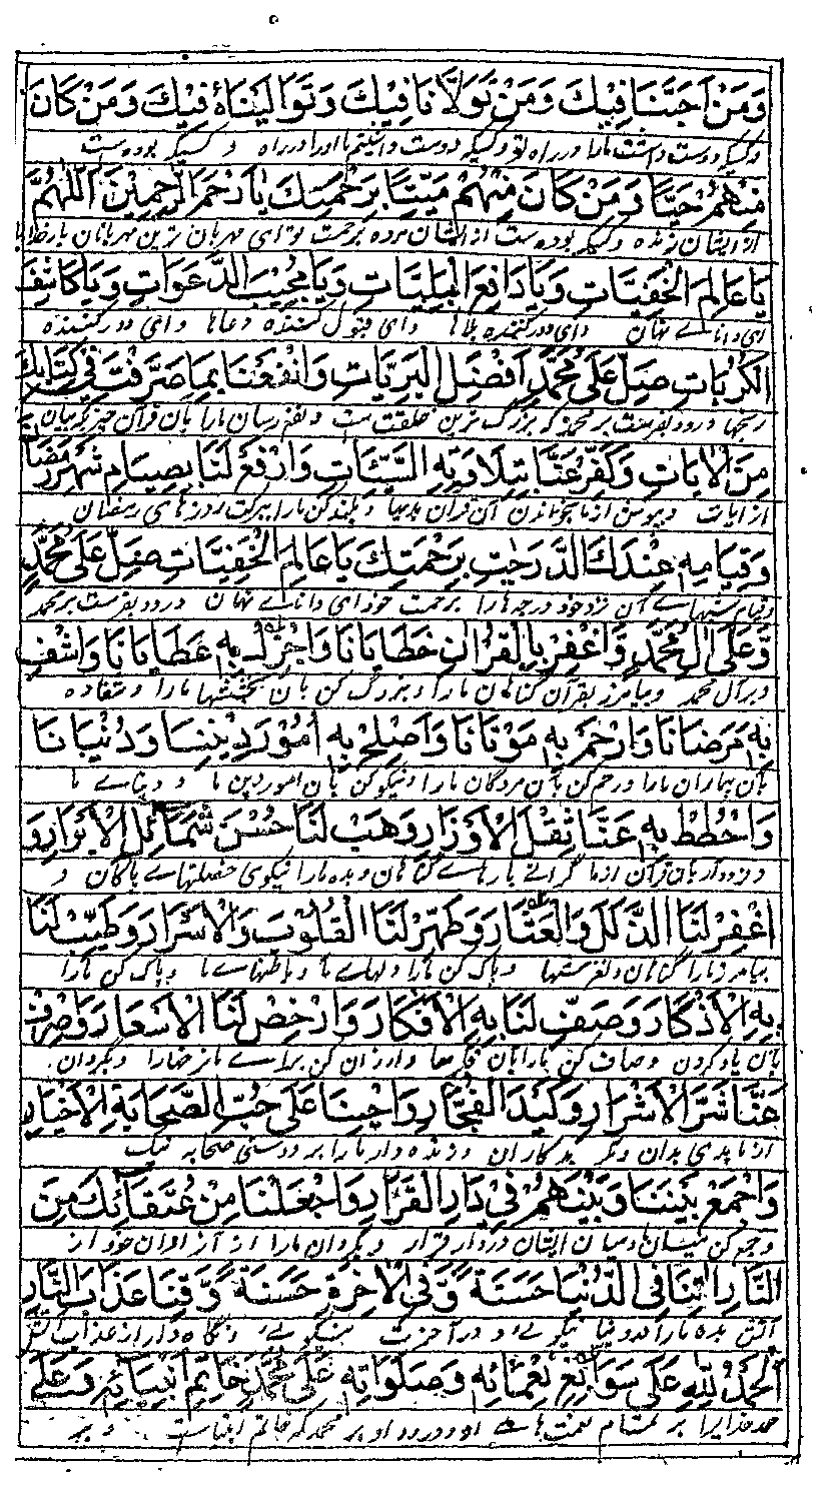 وَمَنْ اَحَبَّنَا فِيْكَ وَمَنْ تَوَلَّانَا فِيْكَ وَتَوَالَيْنَاهُ فِيْكَ وَمَنْ كَانَ
وکسیکه دوست داشت مارا در راه تو وکسیکه دوست داشتیم ما اورا در راه و کسیکه بوده است
مِنْهُمْ حَيًّا وَمَنْ كَانَ مِنْهُمْ مَيِّتًا بِرَحْمَتِكَ يَا اَرْحَمَ الرّٰحِمِيْنَ اَللّٰهُمَّ
از ایشان زنده وکسیکه بوده است از ایشان مرده برحمت تو ای مهربان ترین مهربانان بارخدایا
يَا عَالِمَ الْخَفِيَّاتِ وَيَا دَافِعَ الْبَلِيَّاتِ وَيَا مُجِيْبَ الدَّعَوَاتِ وَيَا كَاشِفَ
ای دانای نهان وای دورکننده بلاها وای قبول کننده دعاها وای دورکننده
الْكُرُبَاتِ صَلِّ عَلٰى مُحَمَّدٍ اَفْضَلِ الْبَرِيَّاتِ وَانْفَعْنَا بِمَا صَرَّفْتَ فِيْ كِتَابِكَ
رنجها درود بفرست بر محمد که بزرگ ترین خلقت است ونفع رسان مارا بآن قرآن
مِنَ الْاٰيَاتِ وَكَفِّرْ عَنَّا بِتِلَاوَتِهِ السَّيِّئَاتِ وَارْفَعْ لَنَا بِصِيَامِ شَهْرِ رَمَضَانَ
از ایات وبپوش از ما بخواندن آن قرآن بدیها وبلند کن مارا ببرکت روزهای رمضان
وَقِيَامِهِ عِنْدَكَ الدَّرَجٰتِ بِرَحْمَتِكَ يَا عَالِمَ الْخَفِيَّاتِ صَلِّ عَلٰى مُحَمَّدٍ
وقیام شبهای آن نزد خود درجه هارا برحمت خود ای دانای نهان درود بفرست بر محمد
وَّعَلٰى اٰلِ مُحَمَّدٍ وَّاغْفِرْ بِالْقُرْاٰنِ خَطَايَانَا وَاَجْزِلْ بِهِ عَطَايَانَا وَاشْفِ
وبر آل محمد وبیامرز بقرآن گناهان مارا وبزرگ کن بآن بخششها مارا وشفا ده
بِهِ مَرْضَانَا وَارْحَمْ بِهِ مَوْتَانَا وَاَصْلِحْ بِهِ اُمُوْرَ دِيْنِنَا وَدُنْيَانَا
بآن بیماران مارا ورحم کن بآن مردگان مارا ونیکو کن بآن امور دین ما و دنیای ما
وَاحْطُطْ بِهِ عَنَّا ثِقْلَ الْاَوْزَارِ وَهَبْ لَنَا حُسْنَ شَمَائِلِ الْاَبْرَارِ وَ
ودور دار بآن قرآن از ما گرانی بارهای گناهان وبده مارا نیکوی خصلتهای پاکان و
اغْفِرْ لَنَا الذَّلَلَ وَالْعِثَارَ وَطَهِّرْ لَنَا الْقُلُوْبَ وَالْاَسْرَارَ وَطَيِّبْ لَنَا
بیامرز مارا گناهان ولغزشها وپاک کن مارا دلهای ما وباطنهای ما وپاک کن مارا
بِهِ الْاَذْكَارَ وَصَفِّ لَنَا بِهِ الْاَفْكَارَ وَارْخِصْ لَنَا الْاَسْعَارَ وَاصْرِفْ
بآن یاد کردن وصاف کن مارا بآن فکرها وارزان کن برای ما نرخهارا وبگردان
عَنَّا شَرَّ الْاَشْرَارِ وَكَيْدَ الْفُجَّارِ وَاَحْيِنَا عَلٰى حُبِّ الصَّحَابَةِ الْاَخْيَارِ
از ما بدی بدان ومکر بدکاران وزنده دار مارا بر دوستی صحابه نیک
وَاجْمَعْ بَيْنَنَا وَبَيْنَهُمْ فِيْ دَارِ الْقَرَارِ وَاجْعَلْنَا مِنْ عُتَقَائِكَ مِنَ
وجمع کن میان ما ومیان ایشان در دار قرار وبگردان مارا از آزادان خود از
النَّارِ اٰتِنَا فِي الدُّنْيَا حَسَنَةً وَّفِي الْاٰخِرَةِ حَسَنَةً وَّقِنَا عَذَابَ النَّارِ
آتش بده مارا در دنیا نیکوئی و در آخرت نیکوئی و نگاه دار از عذاب آتش
اَلْحَمْدُ لِلّٰهِ عَلٰى سَوَابِغِ نِعْمَائِهِ وَصَلَوَاتِهِ عَلٰى مُحَمَّدٍ خَاتِمِ اَنْبِيَائِهِ وَعَلٰى
حمد خدایرا بر تمام نعمت های او ودرود او بر محمد که خاتم انبیاست و بر